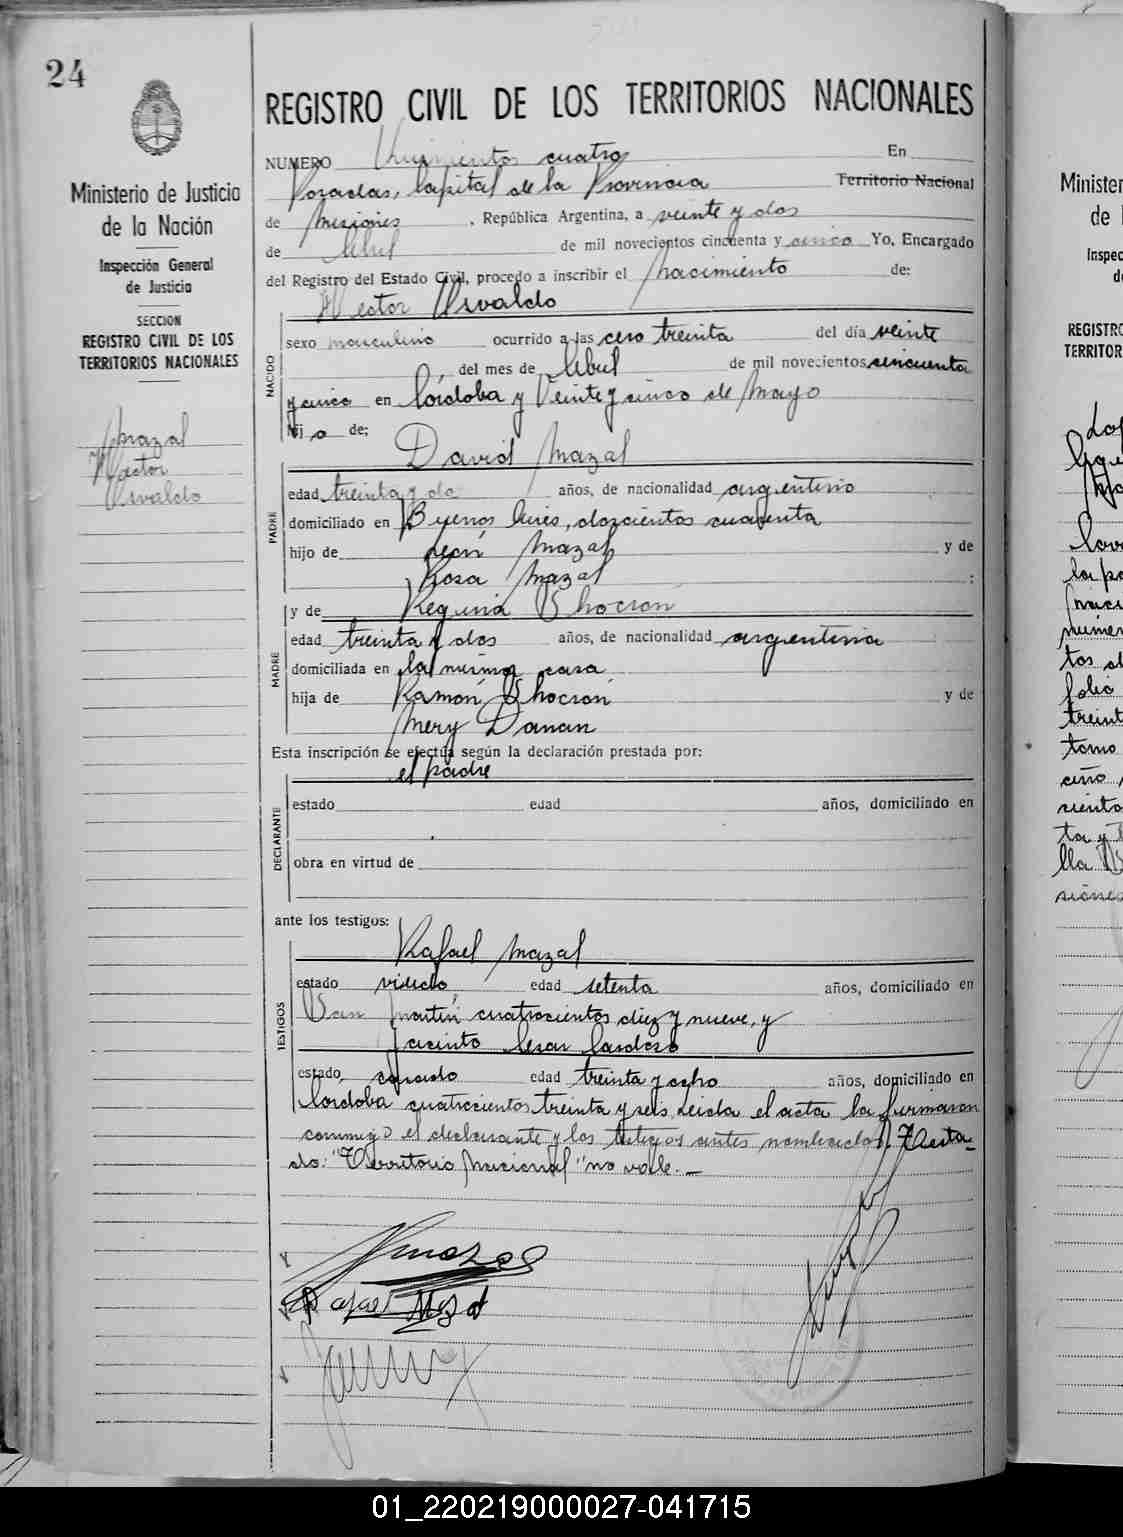 24
Ministerio de Justicia
de la Nación
Inspección General
de Justicia
SECCION
REGISTRO CIVIL DE LOS
TERRITORIOS NACIONALES
Mazal
Hector
Osvaldo
REGISTRO CIVIL DE LOS TERRITORIOS NACIONALES
NUMERO Quinientos cuatro En
Posadas, Capital de la Provincia Territorio Nacional
de Misiones, República Argentina, a veinte y dos
de Abril de mil novecientos cincuenta y cinco Yo, Encargado
del Registro del Estado Civil, procedo a inscribir el Nacimiento de:
Hector Osvaldo
NACIDO
sexo masculino ocurrido a las cero treinta del día veinte
del mes de Abril de mil novecientos cincuenta
y cinco en Córdoba y Veinte y cinco de Mayo
Hijo de:
David Mazal
PADRE
edad treinta y do años, de nacionalidad argentino
domiciliado en Buenos Aires, doscientos cuarenta
hijo de León Mazal y de
Rosa Mazal :
y de Regina Chocron
MADRE
edad treinta y dos años, de nacionalidad argentina
domiciliada en la misma casa
hija de Ramón Chocrón y de
Mery Danan
Esta inscripción se efectúa según la declaración prestada por:
el padre
DECLARANTE
estado edad años, domiciliado en
obra en virtud de
ante los testigos:
Rafael Mazal
TESTIGOS
estado viudo, edad setenta años, domiciliado en
San Martín cuatrocientos diez y nueve, y
Jacinto Cesar Cardozo
estado casado edad treinta y ocho años, domiciliado en
Córdoba cuatrocientos treinta y seis. Leida el acta la firmaron
conmigo el declarante y los testigos antes nombrados. Testa-
do: "Territorio Nacional" no vale.-
Rafael Mazal
Minister
de l
Inspec
de
REGISTRO
TERRITOR
la pa
numer
tos
folio
treint
tomo
ciento
ta y
lla
siones
01_220219000027-041715